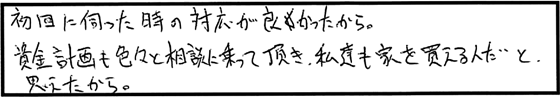 初回に伺った時の対応が良かったから。
資金計画も色々と相談に乗って頂き、私達も家を買えるんだ"と、
思えたから。